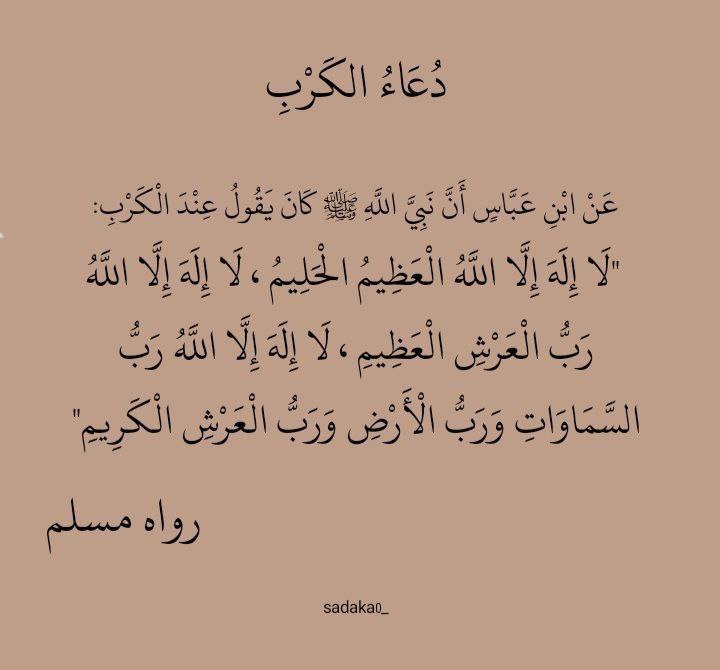 دُعَاءُ الكَرْبِ
عَنْ ابْنِ عَبَّاسٍ أَنَّ نَبِيَّ اللَّهِ ﷺ كَانَ يَقُولُ عِنْدَ الْكَرْبِ:
"لَا إِلَهَ إِلَّا اللَّهُ الْعَظِيمُ الْحَلِيمُ ، لَا إِلَهَ إِلَّا اللَّهُ
رَبُّ الْعَرْشِ الْعَظِيمِ ، لَا إِلَهَ إِلَّا اللَّهُ رَبُّ
السَّمَاوَاتِ وَرَبُّ الْأَرْضِ وَرَبُّ الْعَرْشِ الْكَرِيمِ"
رواه مسلم
sadaka0_